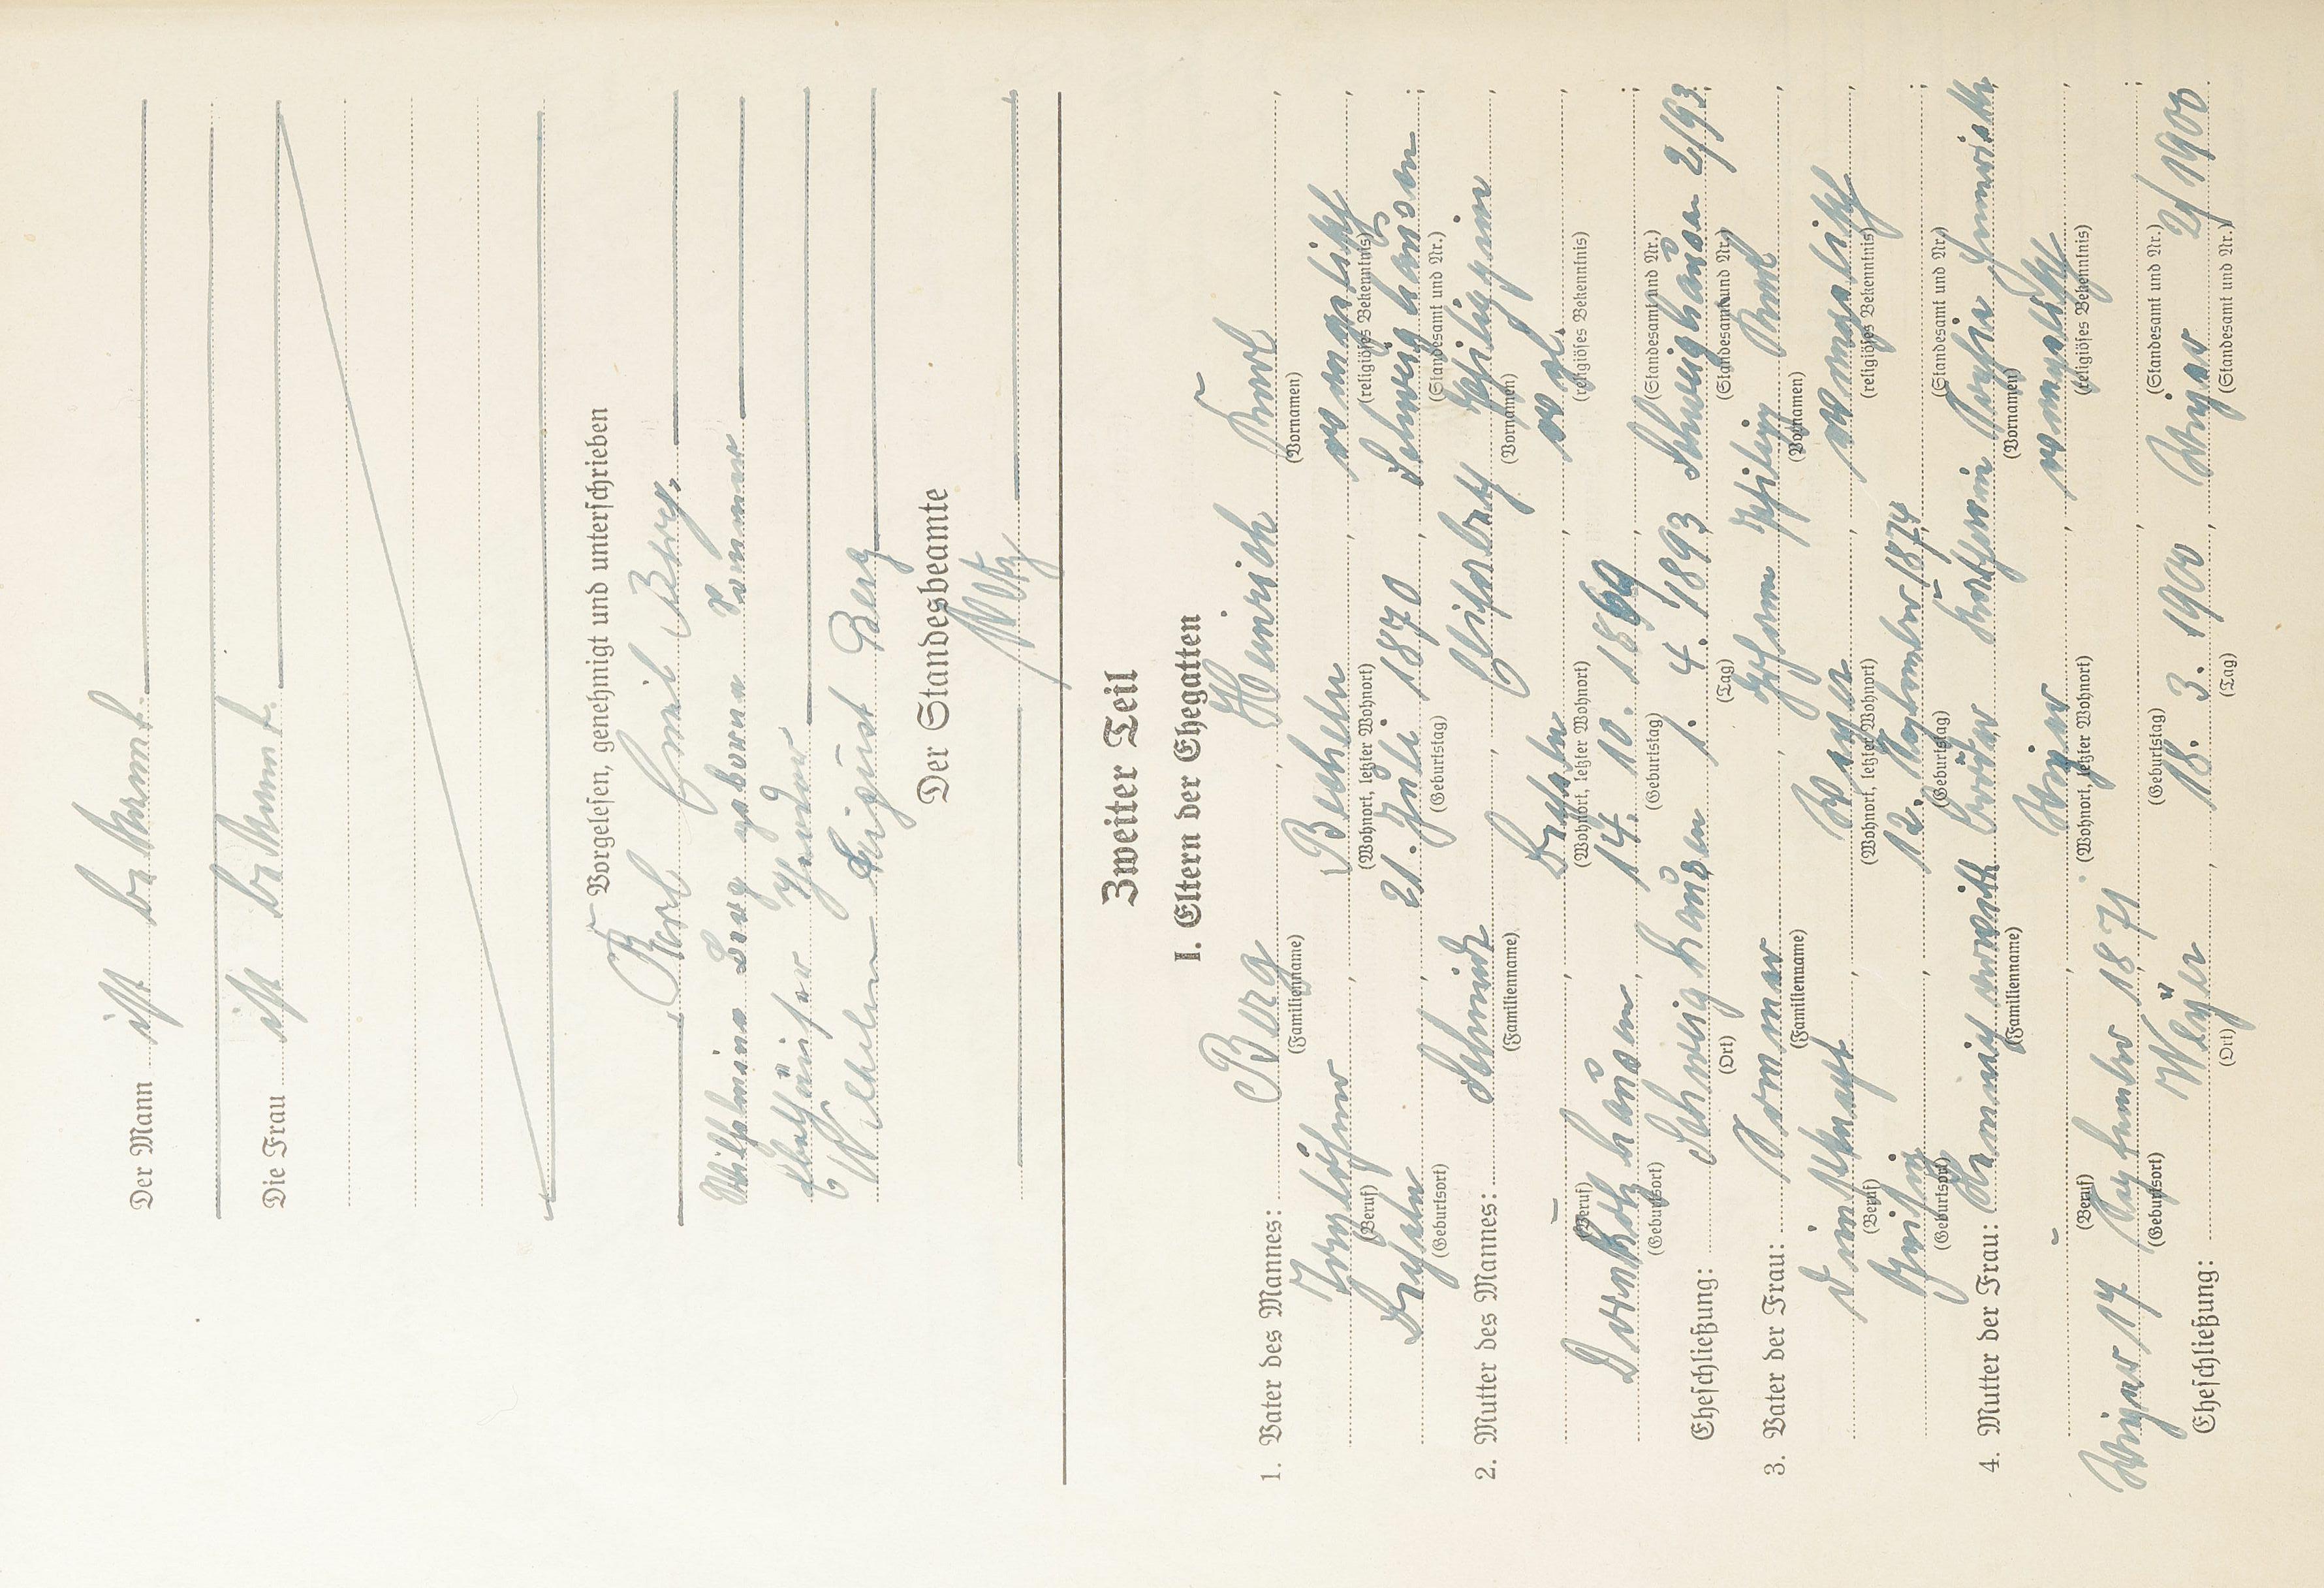 Der Mann ist bekannt.
Die Frau ist bekannt.
Vorgelesen, genehmigt und unterschrieben
Karl Emil Berg.
Wilhelmine Berg geborene Sommer
Wilhelm August Berg
Der Standesbeamte
Zweiter Teil
I. Eltern der Ehegatten
1. Vater des Mannes: Berg, Heinrich Karl,
(Familienname) (Vornamen)
Becheln, evangelisch,
(Beruf) (Wohnort, letzter Wohnort) (religiöses Bekenntnis)
Becheln, 21. Juli 1870, Schweighausen;
(Geburtsort) (Geburtstag) (Standesamt und Nr.)
2. Mutter des Mannes: Schmidt, Elisabeth Philippine,
(Familienname) (Vornamen)
–, Becheln, evgl.,
(Beruf) (Wohnort, letzter Wohnort) (religiöses Bekenntnis)
Dornholzhausen, 14. 10. 1869,;
(Geburtsort) (Geburtstag) (Standesamt und Nr.)
Eheschließung: Schweighausen 1. 4. 1893 Schweighausen 2/93;
(Ort) (Tag) (Standesamt und Nr.)
3. Vater der Frau: Sommer, Johann Philipp Karl,
(Familienname) (Vornamen)
evangelisch,
(Beruf) (Wohnort, letzter Wohnort) (religiöses Bekenntnis)
12. September 1874,;
(Geburtsort) (Geburtstag) (Standesamt und Nr.)
4. Mutter der Frau:
(Familienname) (Vornamen)
–, evangelisch,
(Beruf) (Wohnort, letzter Wohnort) (religiöses Bekenntnis)
17 September 1871,;
(Geburtsort) (Geburtstag) (Standesamt und Nr.)
Eheschließung: Weyer, 18. 3. 1900, Weyer 2/1900;
(Ort) (Tag) (Standesamt und Nr.)